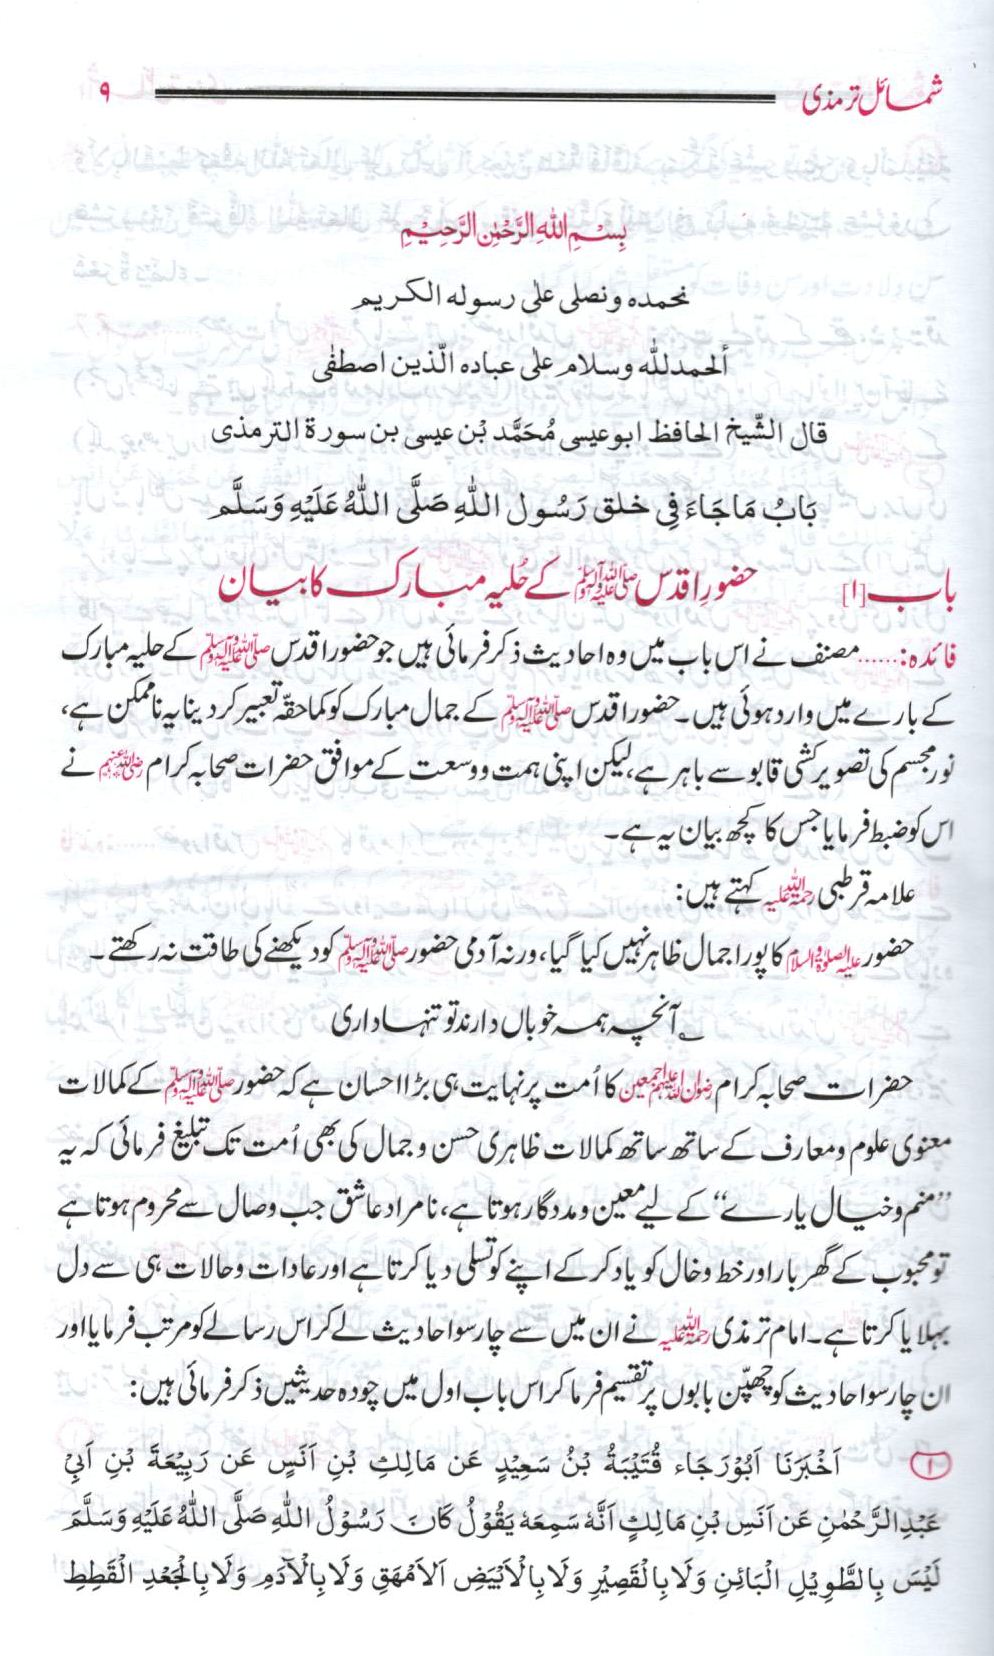 شمائل ترمذی ۹
بِسْمِ اللهِ الرَّحْمٰنِ الرَّحِيْمِ
نحمده ونصلی علی رسوله الکریم
ألحمدللّٰه وسلام علی عباده الّذین اصطفٰی
قال الشّیخ الحافظ ابوعیسی مُحَمَّد بْن عیسی بن سورة الترمذی
بَابُ مَاجَاءَ فِی خلق رَسُول اللّٰهِ صَلَّی اللّٰهُ عَلَیْهِ وَسَلَّم
باب [۱] حضورِ اقدس ﷺ کے حُلیہ مبارک کا بیان
فائدہ: ...... مصنف نے اس باب میں وہ احادیث ذکر فرمائی ہیں جو حضور اقدس ﷺ کے حلیہ مبارک
کے بارے میں وارد ہوئی ہیں۔ حضور اقدس ﷺ کے جمال مبارک کو کماحقہّ تعبیر کر دینا یہ ناممکن ہے،
نور مجسم کی تصویر کشی قابو سے باہر ہے، لیکن اپنی ہمت و وسعت کے موافق حضرات صحابہ کرام رضی اللہ عنہم نے
اس کو ضبط فرمایا جس کا کچھ بیان یہ ہے۔
علامہ قرطبی رحمۃ اللہ علیہ کہتے ہیں:
حضور علیہ الصلوٰۃ والسلام کا پورا جمال ظاہر نہیں کیا گیا، ورنہ آدمی حضور ﷺ کو دیکھنے کی طاقت نہ رکھتے۔
؂ آنچہ ہمہ خوباں دارند تو تنہا داری
حضرات صحابہ کرام رضوان اللہ علیہم اجمعین کا اُمت پر نہایت ہی بڑا احسان ہے کہ حضور ﷺ کے کمالات
معنوی علوم و معارف کے ساتھ ساتھ کمالات ظاہری حسن و جمال کی بھی اُمت تک تبلیغ فرمائی کہ یہ
”منم و خیال یارے“ کے لیے معین و مددگار ہوتا ہے، نامراد عاشق جب وصال سے محروم ہوتا ہے
تو محبوب کے گھر بار اور خط و خال کو یاد کر کے اپنے کو تسلی دیا کرتا ہے اور عادات و حالات ہی سے دل
بہلایا کرتا ہے۔ امام ترمذی رحمۃ اللہ علیہ نے ان میں سے چار سو احادیث لے کر اس رسالے کو مرتب فرمایا اور
ان چار سو احادیث کو چھپّن بابوں پر تقسیم فرما کر اس باب اول میں چودہ حدیثیں ذکر فرمائی ہیں:
۱ اَخْبَرَنَا اَبُوْرَجَاء قُتَيْبَةُ بْنُ سَعِيْدٍ عَن مَالِكِ بْنِ اَنَسٍ عَن رَبِيْعَةَ بْنِ اَبِيْ
عَبْدِالرَّحْمٰنِ عَن اَنَسِ بْنِ مَالِكٍ اَنَّهٗ سَمِعَهٗ يَقُوْلُ كَانَ رَسُوْلُ اللّٰهِ صَلَّى اللّٰهُ عَلَيْهِ وَسَلَّمَ
لَيْسَ بِالطَّوِيْلِ الْبَائِنِ وَلَا بِالْقَصِيْرِ وَلَا بِالْاَبْيَضِ الْاَمْهَقِ وَلَا بِالْاٰدَمِ وَلَا بِالْجَعْدِ الْقَطِطِ